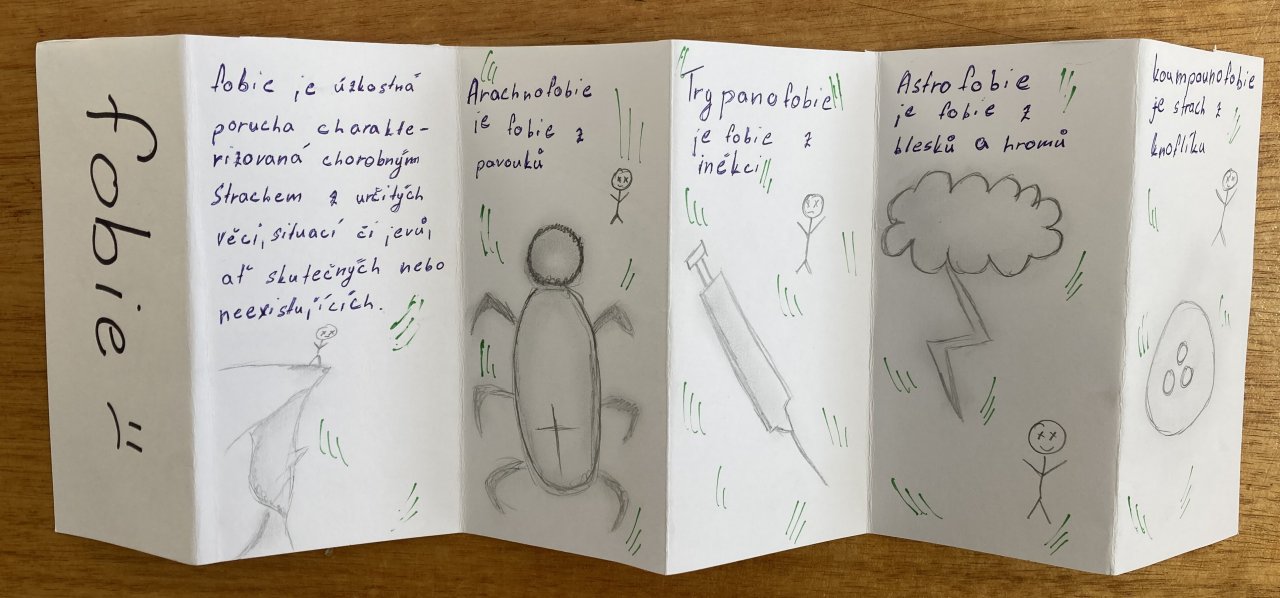 fobie :)
fobie je úzkostná
porucha charakte-
rizovaná chorobným
strachem z určitých
věcí, situací či jevů,
ať skutečných nebo
neexistujících.
Arachnofobie
je fobie z
pavouků
Trypanofobie
je fobie z
inékcí
Astrofobie
je fobie z
blesků a hromů
koumpounofobie
je strach z
knoflíku